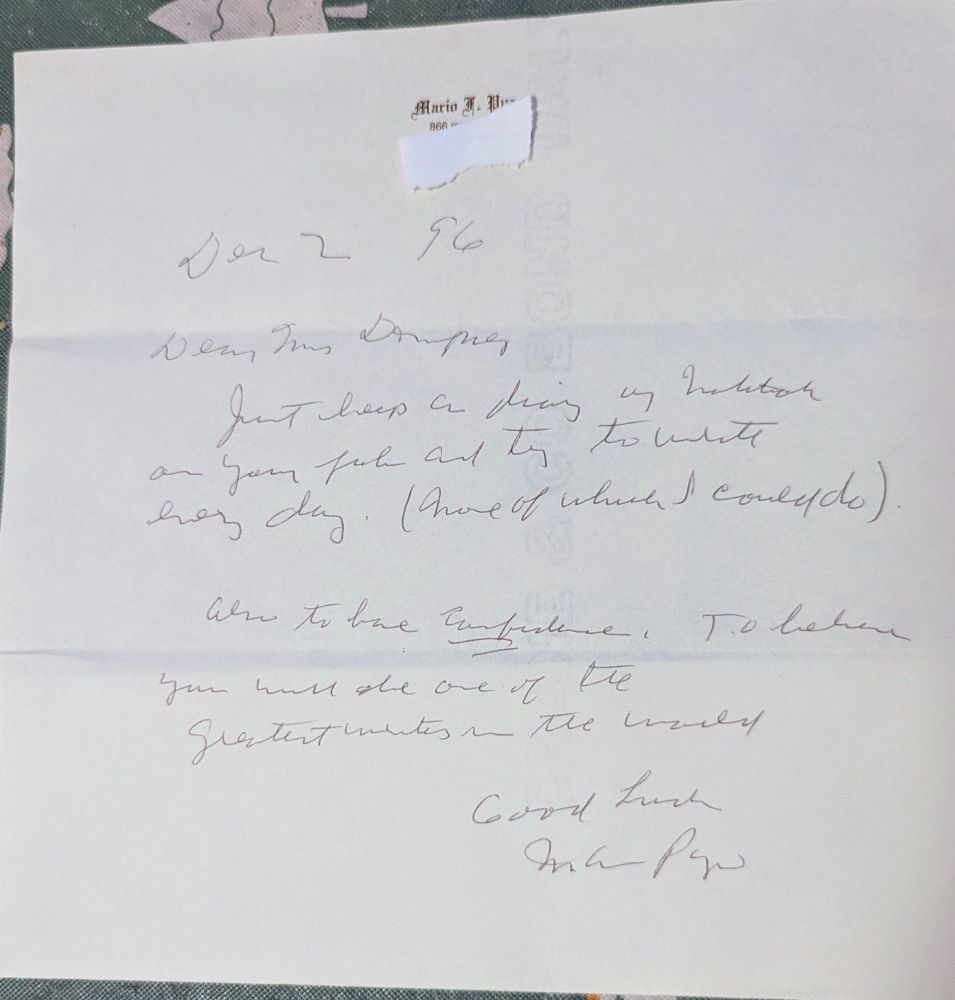 Mario F. Puz
866
Dec 2 96
Dear Mrs Dempsey
Just keep a diary or notebook
on your job and try to write
every day. (None of which I could do).
Also to have Confidence. To believe
you will be one of the
greatest writers in the world
Good Luck
Mario Puzo